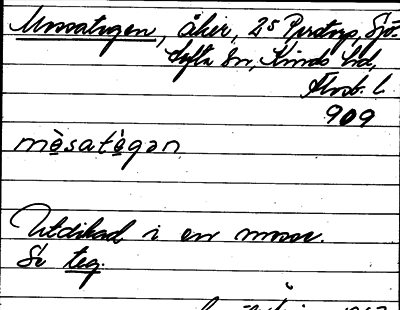 Mossategen, åker, 2⁵ Perstorp, Sjö-
tofta sn, Kinds hd,
Älvsb. l.
909
mòsatègən
Utdikad i en mosse.
Se teg.